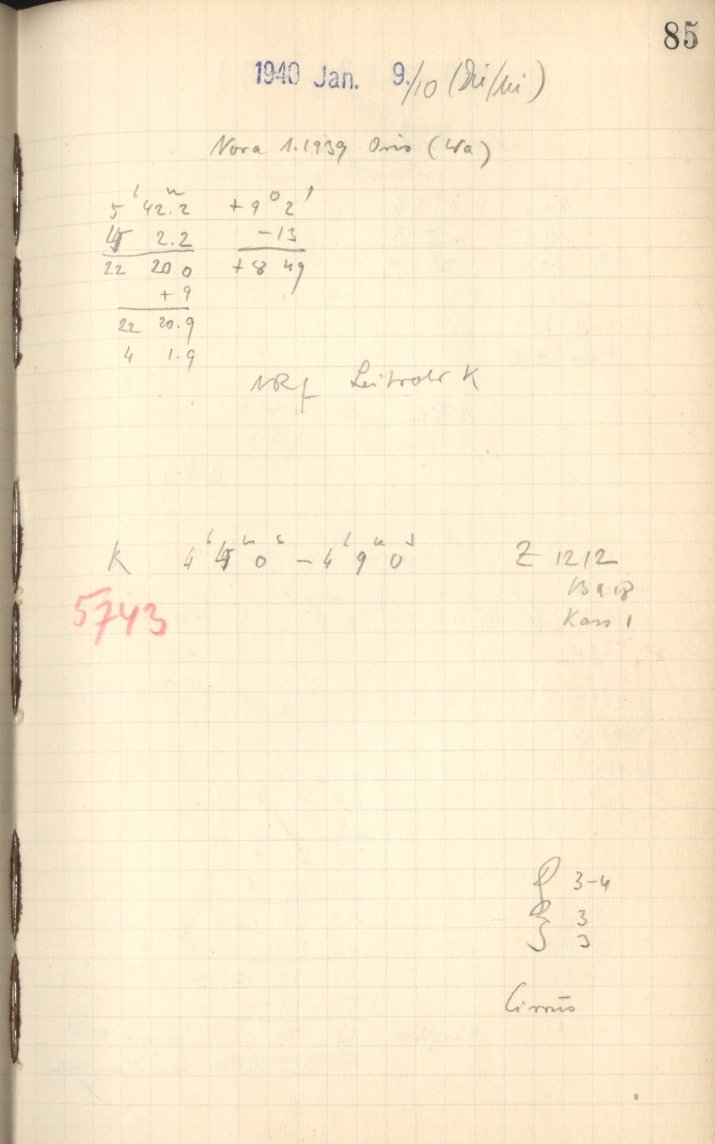 85
1940 Jan. 9./10 (Di/Mi)
Nova 1.1939 Orio (Wa)
5 h 42.2 m +9° 2'
2.2 -13
22 20 0 +8 49
+ 9
22 20.9
4 1.9
NRf Leitrohr K
K 4 h 4 m 0 s - 4 h 9 m 0 s Z 1212
5743
Kass 1
3-4
3
3
Cirrus